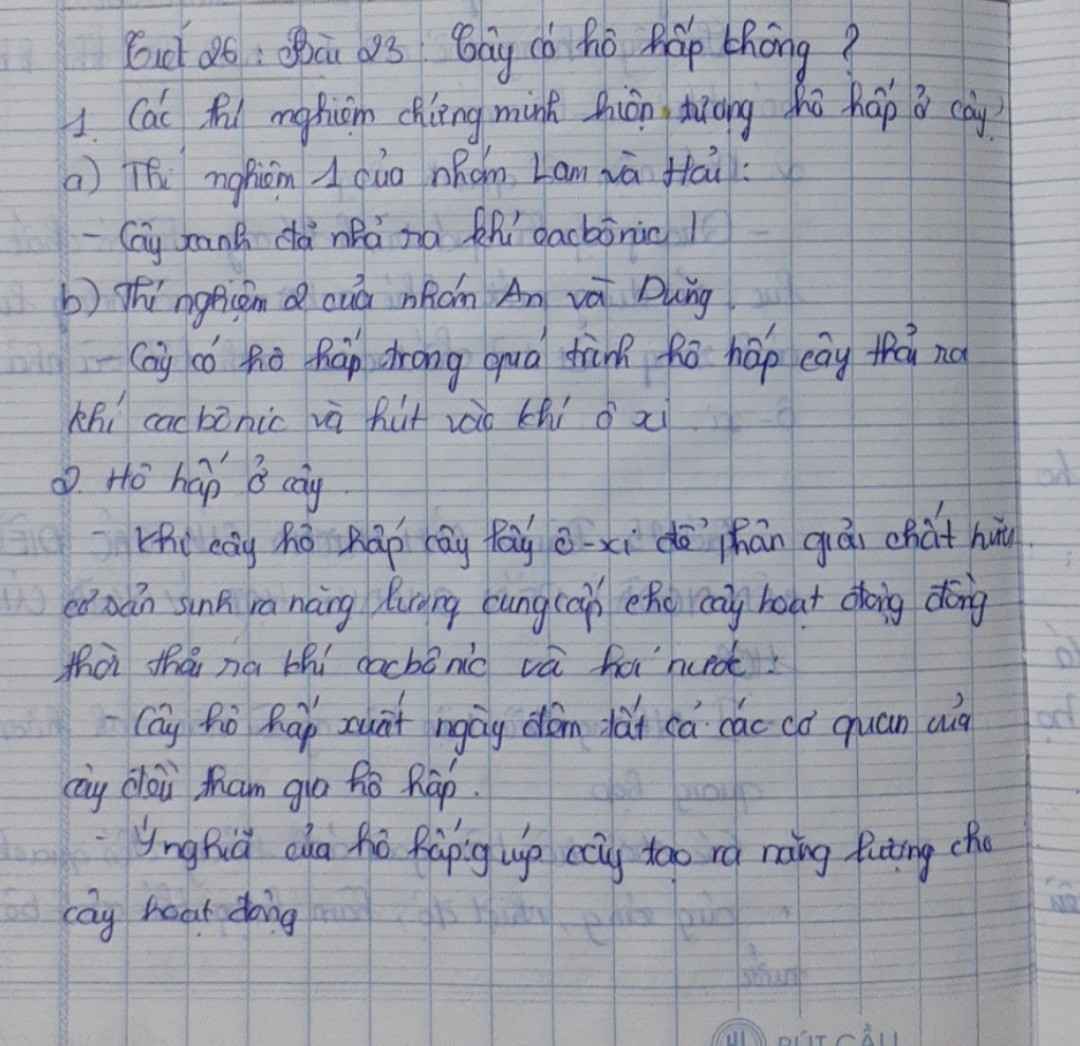 Tiết 26 : Bài 23 : Cây có hô hấp không ?
1. Các thí nghiệm chứng minh hiện tượng hô hấp ở cây?
a) Thí nghiệm 1 của nhóm Lam và Hải :
- Cây xanh đã nhả ra khí cacbônic
b) Thí nghiệm 2 của nhóm An và Dũng
- Cây có hô hấp trong quá trình hô hấp cây thải ra
khí cacbônic và hút vào khí ô xi
2. Hô hấp ở cây
- Khi cây hô hấp cây lấy ô-xi để phân giải chất hữu
cơ sản sinh ra năng lượng cung cấp cho cây hoạt động đồng
thời thải ra khí cacbônic và hơi nước.
- Cây hô hấp xuất ngày đêm tất cả các cơ quan của
cây đều tham gia hô hấp.
- Ý nghĩa của hô hấp: giúp cây tạo ra năng lượng cho
cây hoạt động